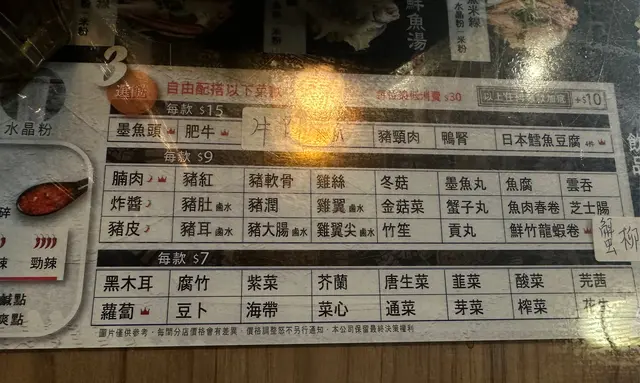 鮮魚湯
3
自由配搭以下
$30
+$10
水晶粉
每款 $15
墨魚頭 肥牛 豬頸肉 鴨腎 日本鱈魚豆腐 4件
每款 $9
腩肉 豬紅 豬軟骨 雞絲 冬菇 墨魚丸 魚腐 雲吞
炸醬 豬肚 鹵水 豬潤 雞翼 鹵水 金菇菜 蟹子丸 魚肉春卷 芝士腸
豬皮 豬耳 鹵水 豬大腸 鹵水 雞翼尖 鹵水 竹笙 貢丸 鮮竹龍蝦卷
蟹柳
勁辣
每款 $7
黑木耳 腐竹 紫菜 芥蘭 唐生菜 韮菜 酸菜 芫茜
蘿蔔 豆卜 海帶 菜心 通菜 芽菜 榨菜
圖片僅供參考，每間分店價格會有差異，價格調整恕不另行通知，本公司保留最終決策權利